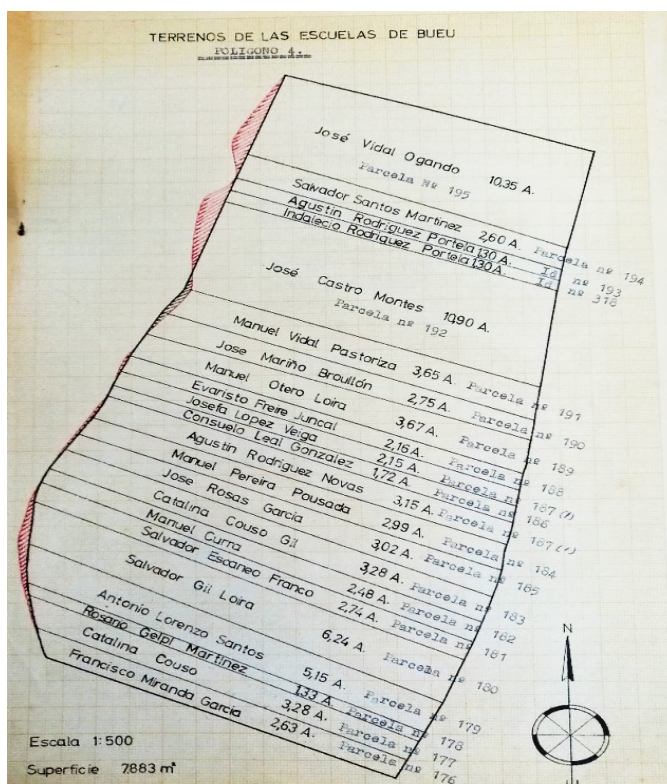 TERRENOS DE LAS ESCUELAS DE BUEU
POLIGONO 4.
José Vidal Ogando 10,35 A.
Parcela Nº 195
Salvador Santos Martinez 2,60 A. Parcela nº 194
Agustin Rodriguez Portela 1,30 A. Id nº 193
Indalecio Rodriguez Portela 1,30 A. Id nº 318
José Castro Montes 10,90 A.
Parcela nº 192
Manuel Vidal Pastoriza 3,65 A. Parcela nº 191
Jose Mariño Broullón 2,75 A. Parcela nº 190
Manuel Otero Loira 3,67 A. Parcela nº 189
Evaristo Freire Juncal 2,16 A. Parcela nº 188
Josefa Lopez Veiga 2,15 A. Parcela nº 187
Consuelo Leal Gonzalez 1,72 A. Parcela nº 186
Agustin Rodriguez Novas 3,15 A. Parcela nº 187
Manuel Pereira Pousada 2,99 A. Parcela nº 184
Jose Rosas Garcia 3,02 A. Parcela nº 185
Catalina Couso Gil 3,28 A. Parcela nº 183
Manuel Curra 2,48 A. Parcela nº 182
Salvador Escaneo Franco 2,74 A. Parcela nº 181
Salvador Gil Loira 6,24 A. Parcela nº 180
Antonio Lorenzo Santos 5,15 A. Parcela nº 179
Rosario Gelpi Martinez 1,33 A. Parcela nº 178
Catalina Couso 3,28 A. Parcela nº 177
Francisco Miranda Garcia 2,63 A. Parcela nº 176
N
Escala 1:500
Superficie 7.883 m²